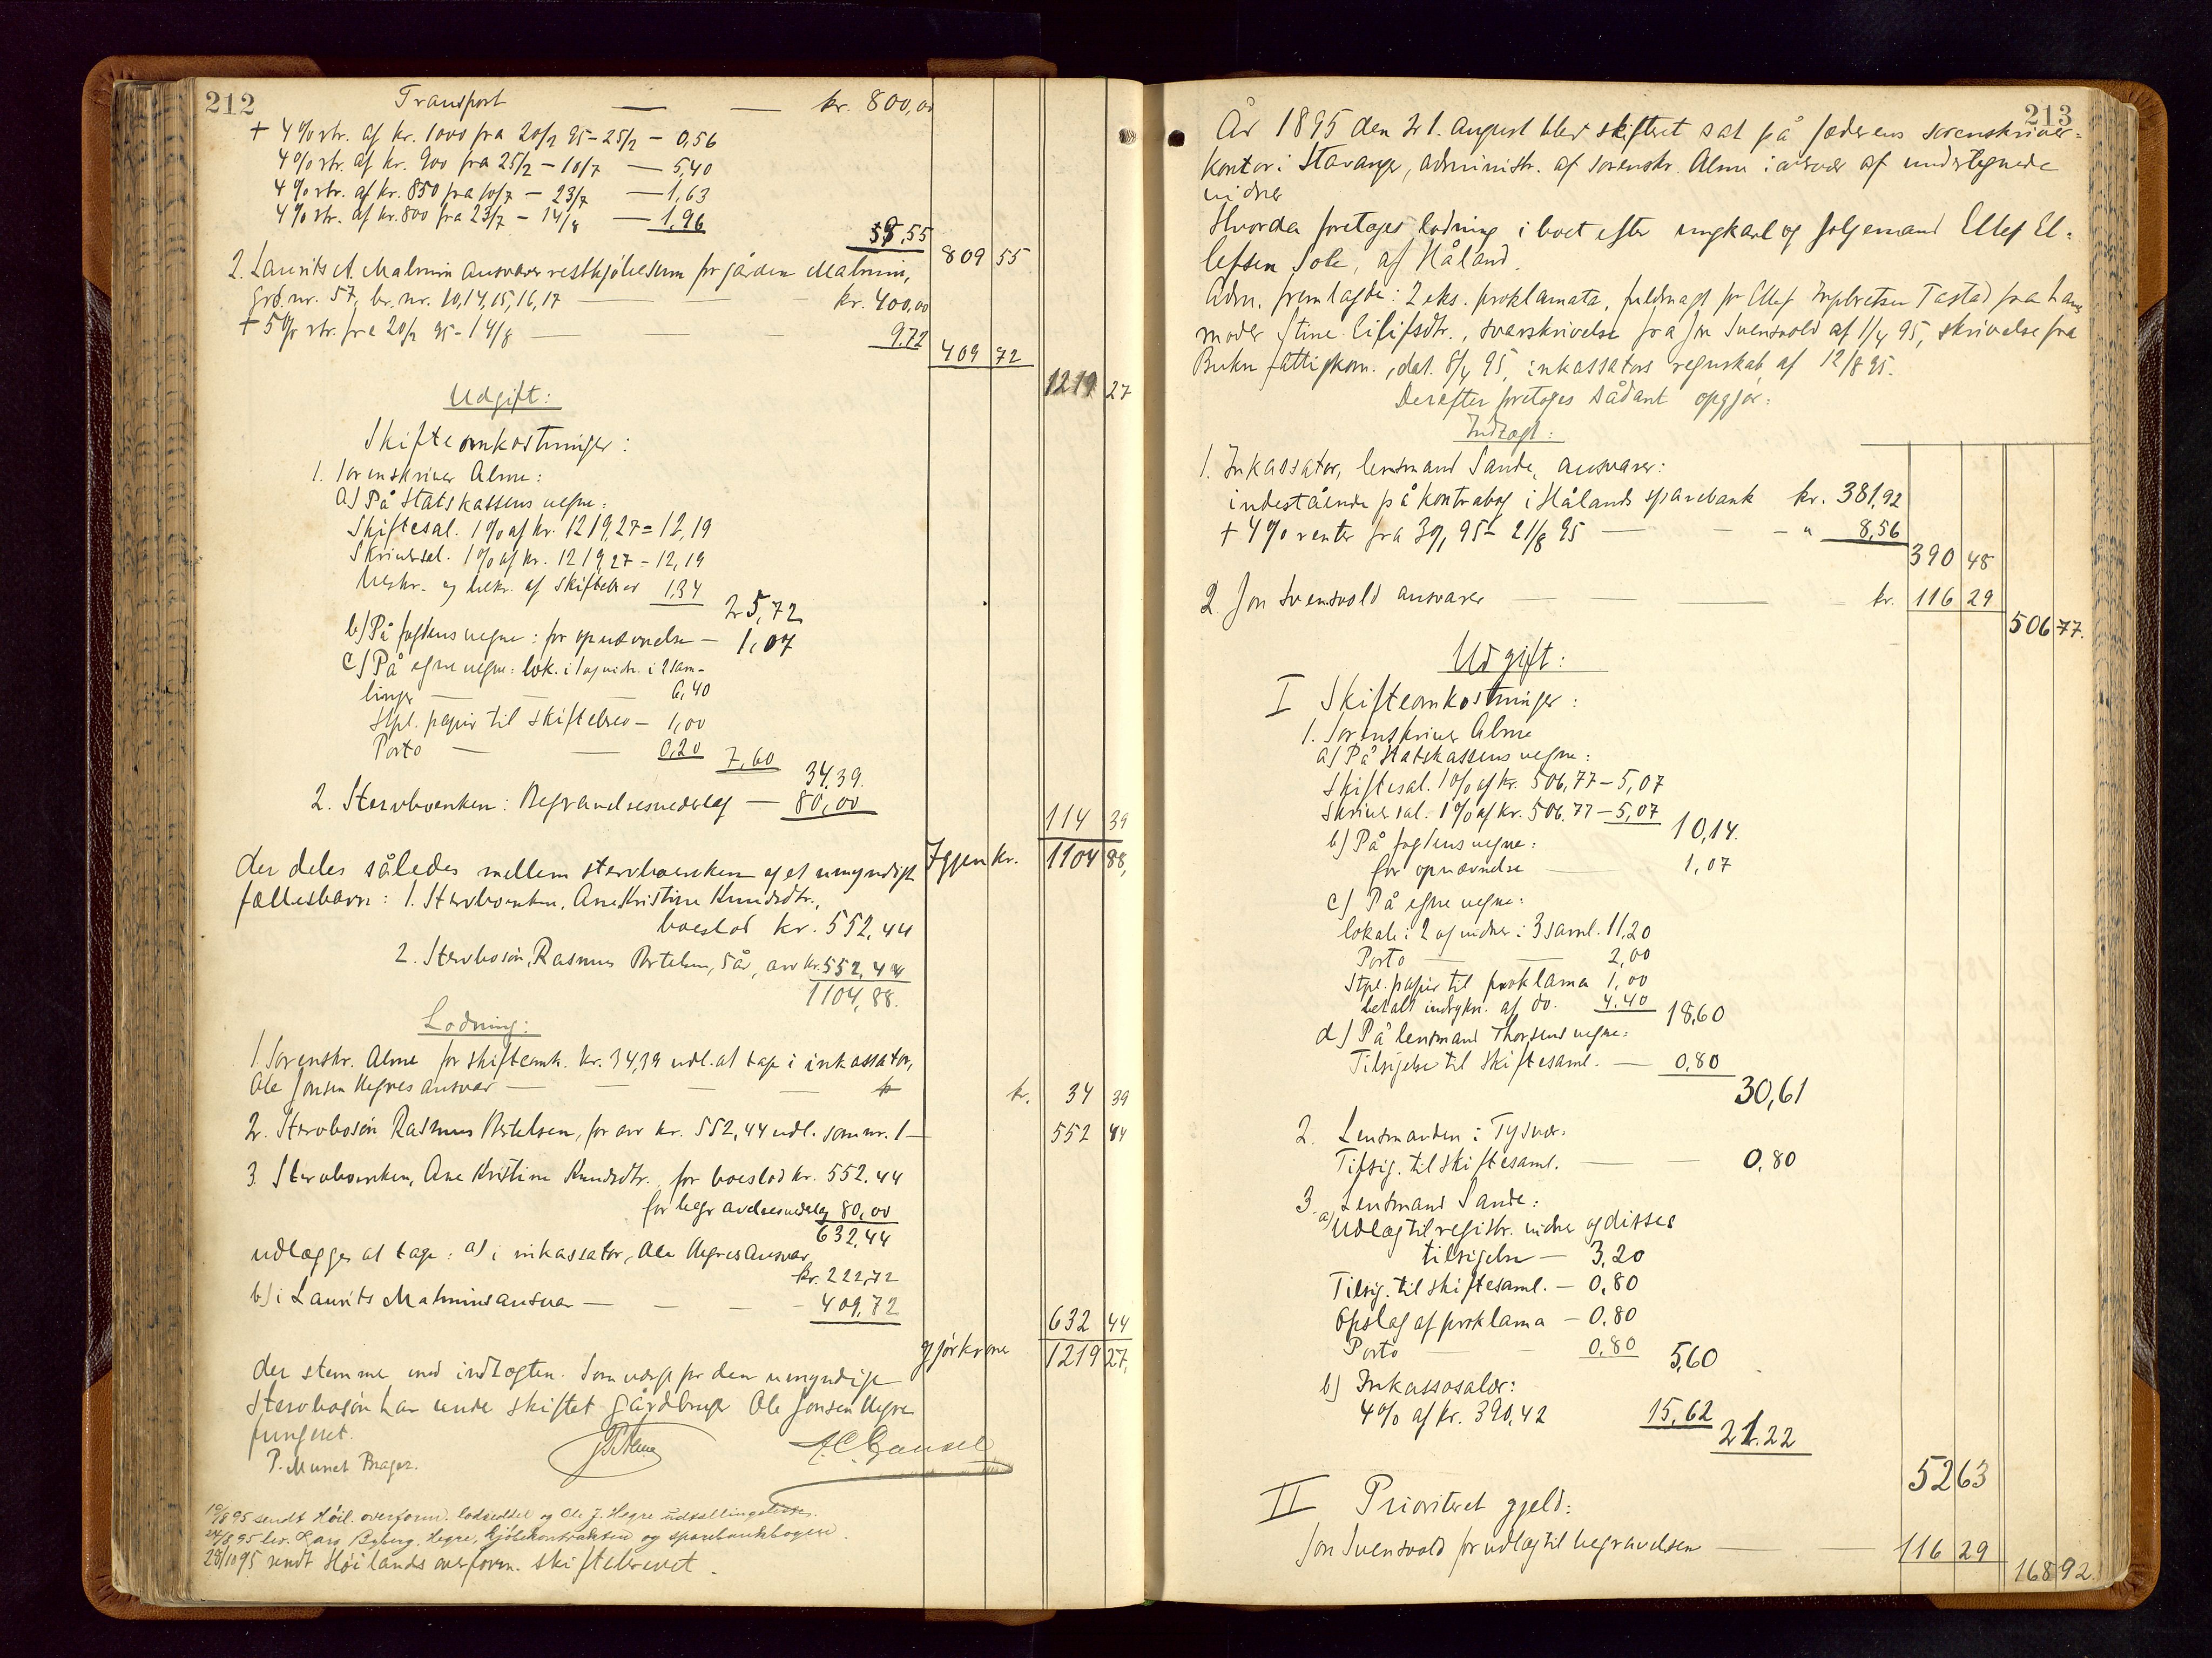 212
Transport — — kr. 800,00
+ 4% rtr. af kr. 1000 fra 20/2 95 - 25/2 - 0,56
4% rtr. af kr. 900 fra 25/2 - 10/7 — 5,40
4% rtr. af kr. 850 fra 10/7 - 23/7 — 1,63
4% rtr. af kr. 800 fra 23/7 - 14/8 — 1,96
9,55
809 55
2. Laurits A. Malmin ansvarer restkjøbesum for gården Malmin,
grd. nr. 57, br. nr. 10, 14, 15, 16, 17 — — kr. 400,00
+ 5% rtr. fra 20/2 95 - 14/8 — — 9.72
409 72
1219 27
Udgift:
Skifteomkostninger:
1. Sorenskriver Alme:
a) På Statskassens vegne:
Skiftesal. 1% af kr. 1219,27 = 12,19
Skriversal. 1% af kr. 1219,27 - 12,19
Beskr. og bekr. af skiftebrev 1,34
25,72
b) På fogdens vegne: for opnævnelse — 1,07
c) På egne vegne: lok. i 1 og vidn. i 2 sam-
linger — — 6,40
Stpl. papir til skiftebrev — 1,00
Porto — — 0,20 7,60
34,39.
2. Stervboenken: Begravelsesvederlag — 80,00
114 39
Igjen kr. 1104 88,
der deles således mellem stervboenken og et umyndigt
fællesbarn: 1. Stervboenken, Ane Kristine Knudsdtr.,
boeslod kr. 552,44
2. Stervbosøn, Rasmus Bertelsen, 5 år, arv kr. 552,44
1104,88.
Lodning:
1. Sorenskr. Alme for skifteomk. kr. 34,39 udl. at tage i inkassator,
Ole Jonsen Hegres ansvar — — — kr. 34 39
2. Stervbosøn Rasmus Bertelsen, for arv kr. 552,44 udl. som nr. 1 — 552 44
3. Stervboenken, Ane Kristine Knudsdtr., for boeslod kr. 552,44
for begravelsesvederlag 80,00
632,44
udlægges at tage: a) i inkassator, Ole Hegres Ansvar
kr. 222,72
b) i Laurits Malmins ansvar — — — 409,72
632 44
gjør kroner 1219 27,
der stemmer med indtægten. Som værge for den umyndige
Stervbosøn har under skiftet gårdbruger Ole Jonsen Hegre
fungeret.
P. Alme A. C. Gausel
P. Munch Brager.
19/8 95 sendt Høil. overform. lodseddel og Ole J. Hegre udstillingsliste.
24/8 95 lev. Lars Byberg. Hegre, kjøbekontrakten og sparebankbogen.
28/10 95 sendt Høilands overform. skiftebrevet.
213
År 1895 den 21. August blev skiftet sat på Jæderens sorenskriver-
kontor i Stavanger, administr. af sorenskr. Alme i nærvær af undertegnede
vidner
Hvorda foretoges lodning i boet efter ungkarl og følgemand Ellef El-
lefsen Sole, af Håland.
Adm. fremlagde: 2 eks. proklamata, fuldmagt for Ellef Tastad fra hans
moder Stine Eilifsdtr., svarskrivelse fra Jon Svensvold af 1/4 95, skrivelse fra
Bukn fattigkom., dat. 8/4 95, inkassators regnskab af 12/8 95.
Derefter foretoges sådant opgjør:
Indtægt:
1. Inkassator, lensmand Sande, ansvarer:
indestående på kontrabog i Hålands sparebank kr. 381,92
+ 4% renter fra 95 - 21/8 95 — — - " 8,56
390 48
2 Jon Svensvold ansvarer — — — kr. 116 29
506 77.
Udgift:
I Skifteomkostninger:
1. Sorenskriver Alme
a) På Statskassens vegne:
Skiftesal. 1% af kr. 506,77 - 5,07
Skriversal. 1% af kr. 506,77 - 5,07
10,14.
b) På fogdens vegne:
for opnævnelse — 1,07
c) På egne vegne:
lokale i 2 og vidner i 3 saml. 11,20
Porto — — 2,00
Stpl. papir til proklama 1,00
betalt indrykn. af do. 4.40
18,60
d) På lensmand Thorsens vegne:
Tilsigelse til skiftesaml. — 0,80
30,61
2. Lensmanden i Tysvær:
Tilsig. til skiftesaml. — — 0,80
3. Lensmand Sande:
a) Udlæg til registr. vidner og disses
tilsigelse — 3,20
Tilsig. til skiftesaml. — 0,80
Opslag af proklama — 0.80
Porto — — 0,80
5,60
b) Inkassosalær:
4% af kr. 390,42 15,62
21.22
52 63
II Prioriteret gjeld:
Jon Svensvold for udlæg til begravelsen — — 116 29
168 92.